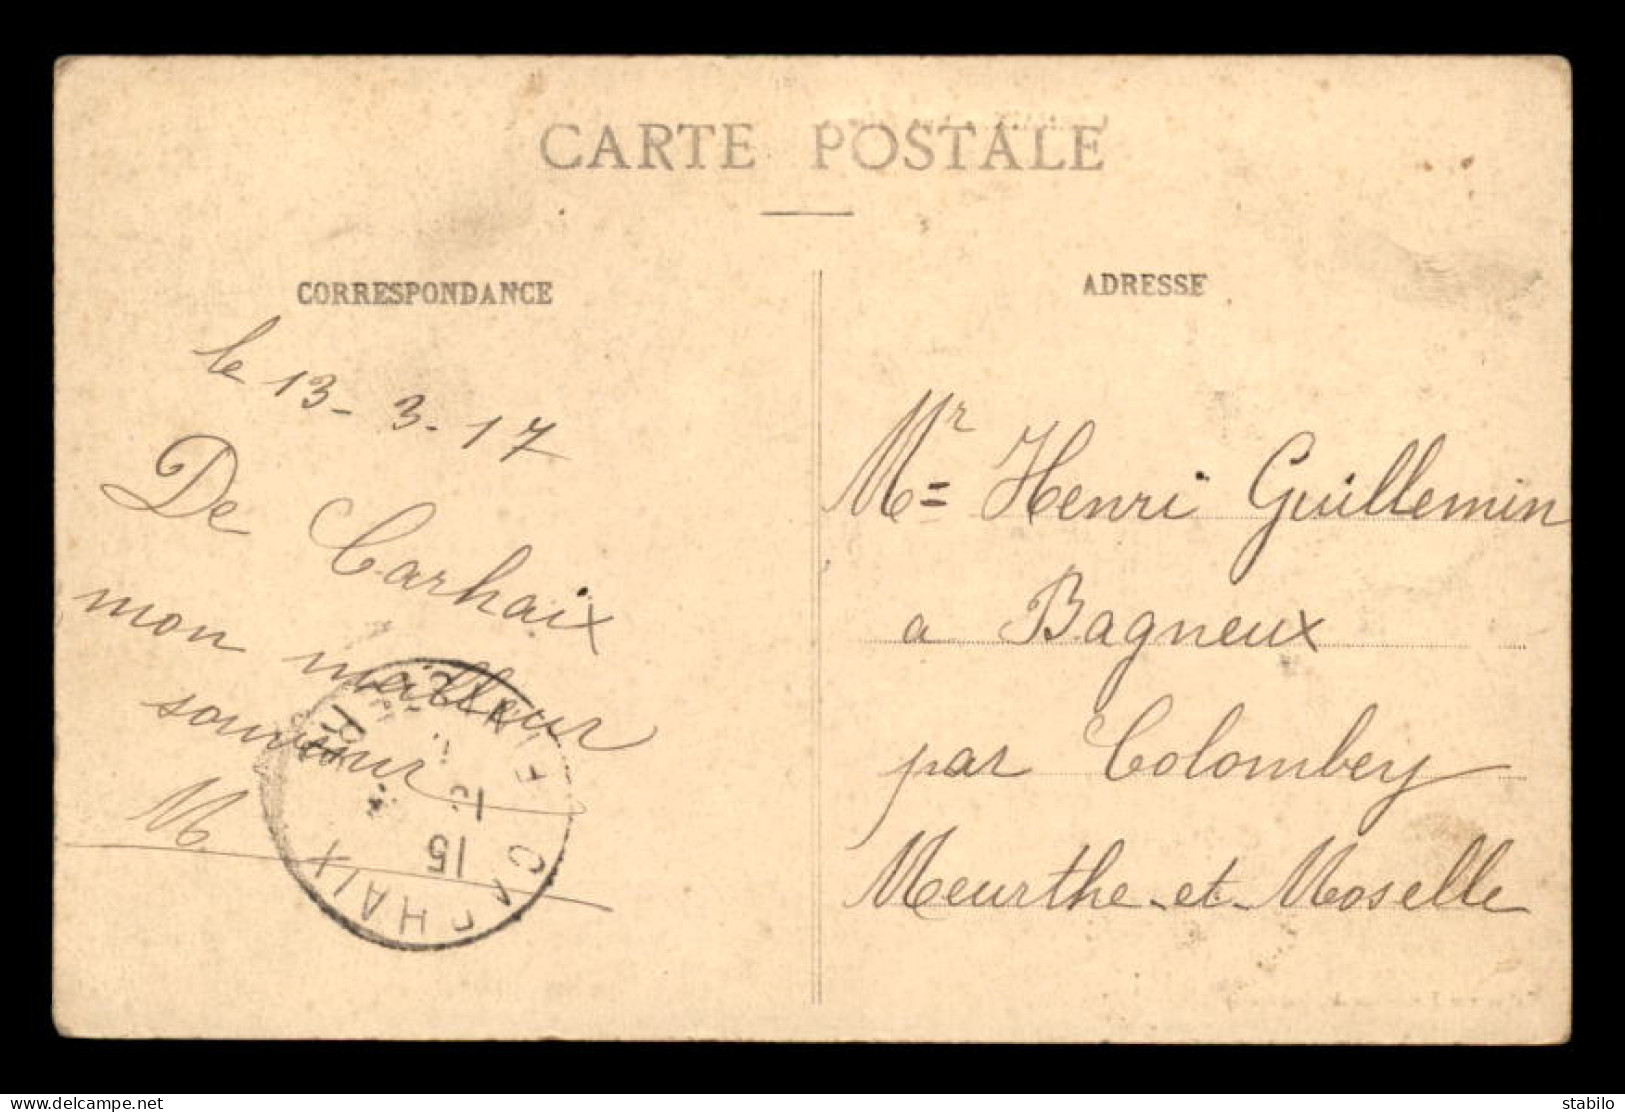 CARTE POSTALE
CORRESPONDANCE
le 13-3-17
De Carhaix
mon meilleur
souvenir
M
CARHAIX
15
ADRESSE
Mr Henri Guillemin
a Bagneux
par Colombey
Meurthe-et-Moselle
delcampe.net
stabilo